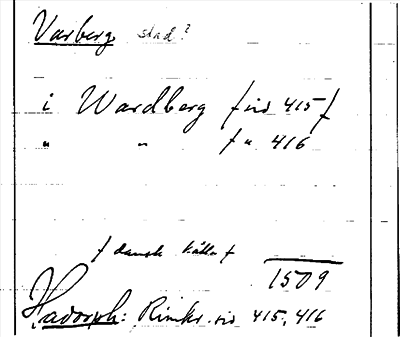 Varberg stad?
i Wardberg / sid 415 /
" " / " 416
/ dansk källa /
1509
Hadorph: Rimkr. sid 415, 416